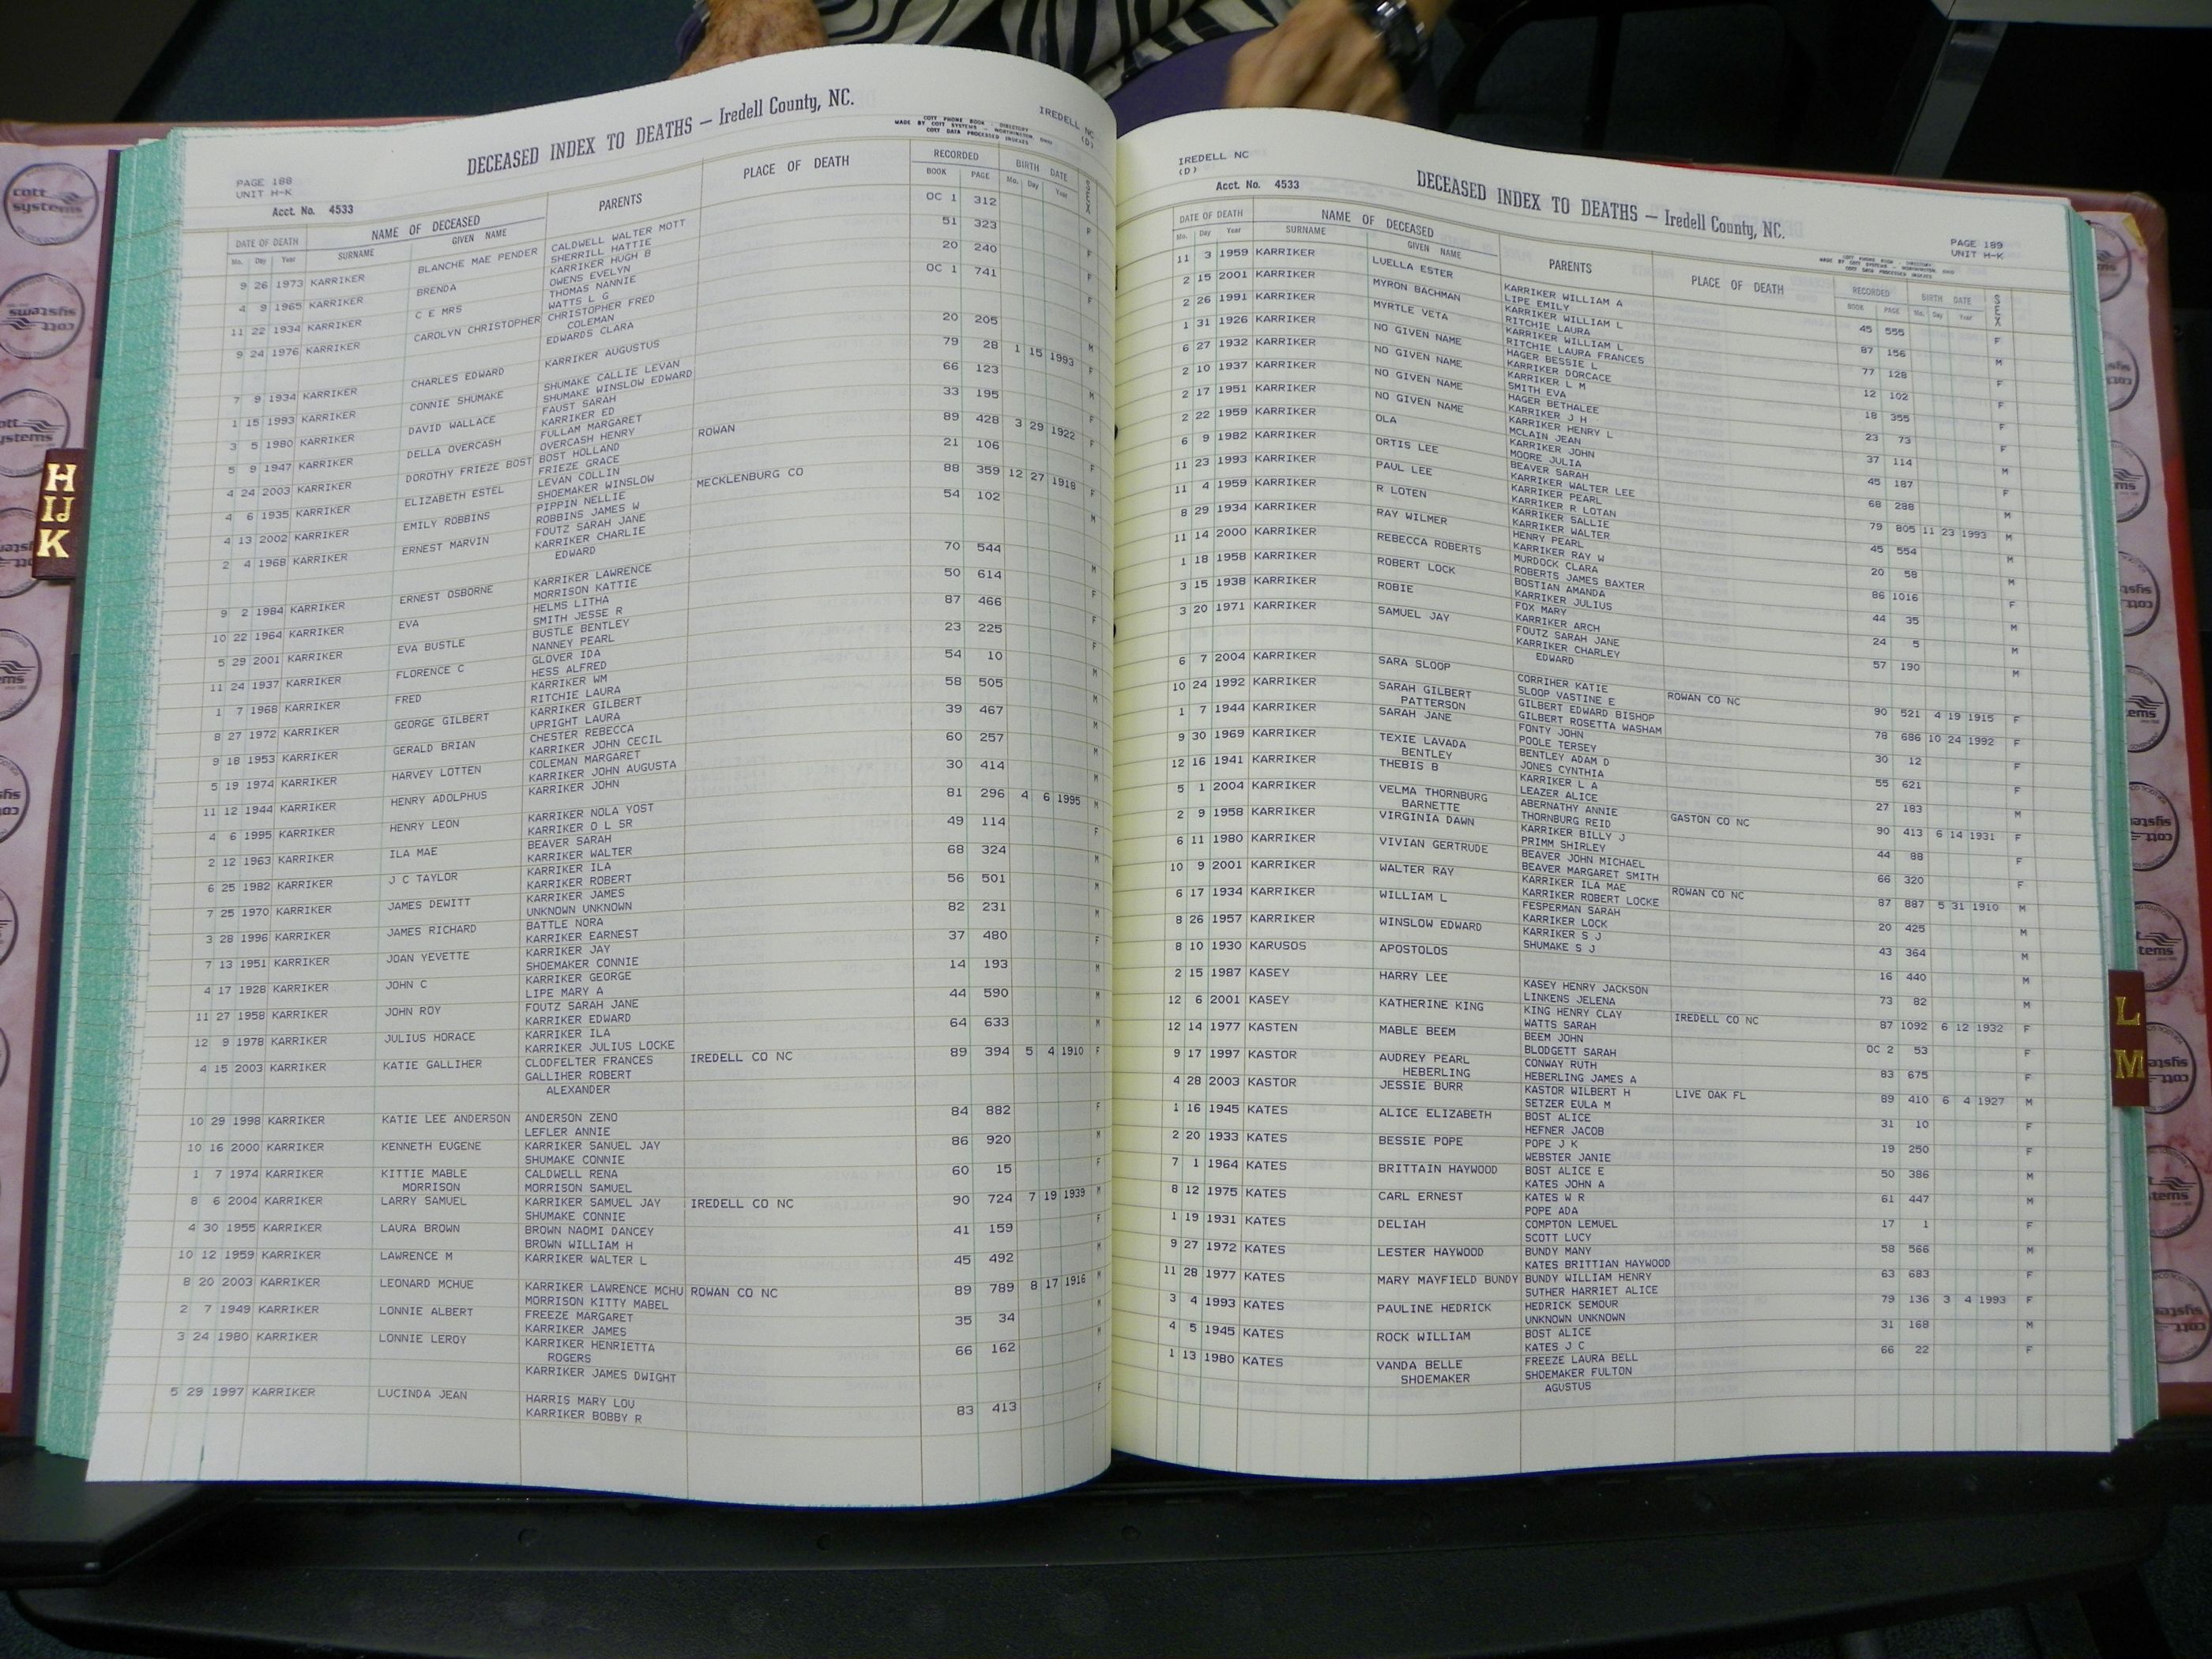 DECEASED INDEX TO DEATHS — Iredell County, NC.
IREDELL NC
(D)
COTT PHONE BOOK - DIRECTORY
MADE BY COTT SYSTEMS - WORTHINGTON, OHIO
COTT DATA PROCESSED INDEXES
PAGE 188
UNIT H-K
Acct. No. 4533
DATE OF DEATH NAME OF DECEASED PARENTS PLACE OF DEATH RECORDED BIRTH DATE SEX
Mo. Day Year SURNAME GIVEN NAME BOOK PAGE Mo. Day Year
9 26 1973 KARRIKER BLANCHE MAE PENDER CALDWELL WALTER MOTT OC 1 312 F
SHERRILL HATTIE
4 9 1965 KARRIKER BRENDA KARRIKER HUGH B 51 323 F
OWENS EVELYN
11 22 1934 KARRIKER C E MRS THOMAS NANNIE 20 240 F
WATTS L G
9 24 1976 KARRIKER CAROLYN CHRISTOPHER CHRISTOPHER FRED OC 1 741 F
COLEMAN
EDWARDS CLARA
7 9 1934 KARRIKER CHARLES EDWARD KARRIKER AUGUSTUS 20 205 M
1 15 1993 KARRIKER CONNIE SHUMAKE SHUMAKE CALLIE LEVAN 79 28 1 15 1993 F
SHUMAKE WINSLOW EDWARD
3 5 1980 KARRIKER DAVID WALLACE FAUST SARAH 66 123 M
KARRIKER ED
5 9 1947 KARRIKER DELLA OVERCASH FULLAM MARGARET 33 195 F
OVERCASH HENRY
4 24 2003 KARRIKER DOROTHY FRIEZE BOST BOST HOLLAND ROWAN 89 428 3 29 1922 F
FRIEZE GRACE
4 6 1935 KARRIKER ELIZABETH ESTEL LEVAN COLLIN 21 106 F
SHOEMAKER WINSLOW
4 13 2002 KARRIKER EMILY ROBBINS PIPPIN NELLIE MECKLENBURG CO 88 359 12 27 1918 F
ROBBINS JAMES W
2 4 1968 KARRIKER ERNEST MARVIN FOUTZ SARAH JANE 54 102 M
KARRIKER CHARLIE
EDWARD
9 2 1984 KARRIKER ERNEST OSBORNE KARRIKER LAWRENCE 70 544 M
MORRISON KATTIE
10 22 1964 KARRIKER EVA HELMS LITHA 50 614 F
SMITH JESSE R
5 29 2001 KARRIKER EVA BUSTLE BUSTLE BENTLEY 87 466 F
NANNEY PEARL
11 24 1937 KARRIKER FLORENCE C GLOVER IDA 23 225 F
HESS ALFRED
1 7 1968 KARRIKER FRED KARRIKER WM 54 10 M
RITCHIE LAURA
8 27 1972 KARRIKER GEORGE GILBERT KARRIKER GILBERT 58 505 M
UPRIGHT LAURA
9 18 1953 KARRIKER GERALD BRIAN CHESTER REBECCA 39 467 M
KARRIKER JOHN CECIL
5 19 1974 KARRIKER HARVEY LOTTEN COLEMAN MARGARET 60 257 M
KARRIKER JOHN AUGUSTA
11 12 1944 KARRIKER HENRY ADOLPHUS KARRIKER JOHN 30 414 M
4 6 1995 KARRIKER HENRY LEON KARRIKER NOLA YOST 81 296 4 6 1995 M
KARRIKER O L SR
2 12 1963 KARRIKER ILA MAE BEAVER SARAH 49 114 F
KARRIKER WALTER
6 25 1982 KARRIKER J C TAYLOR KARRIKER ILA 68 324 M
KARRIKER ROBERT
7 25 1970 KARRIKER JAMES DEWITT KARRIKER JAMES 56 501 M
UNKNOWN UNKNOWN
3 28 1996 KARRIKER JAMES RICHARD BATTLE NORA 82 231 M
KARRIKER EARNEST
7 13 1951 KARRIKER JOAN YEVETTE KARRIKER JAY 37 480 F
SHOEMAKER CONNIE
4 17 1928 KARRIKER JOHN C KARRIKER GEORGE 14 193 M
LIPE MARY A
11 27 1958 KARRIKER JOHN ROY FOUTZ SARAH JANE 44 590 M
KARRIKER EDWARD
12 9 1978 KARRIKER JULIUS HORACE KARRIKER ILA 64 633 M
KARRIKER JULIUS LOCKE
4 15 2003 KARRIKER KATIE GALLIHER CLODFELTER FRANCES IREDELL CO NC 89 394 5 4 1910 F
GALLIHER ROBERT
ALEXANDER
10 29 1998 KARRIKER KATIE LEE ANDERSON ANDERSON ZENO 84 882 F
LEFLER ANNIE
10 16 2000 KARRIKER KENNETH EUGENE KARRIKER SANUEL JAY 86 920 M
SHUMAKE CONNIE
1 7 1974 KARRIKER KITTIE MABLE CALDWELL RENA 60 15 F
MORRISON MORRISON SAMUEL
8 6 2004 KARRIKER LARRY SAMUEL KARRIKER SAMUEL JAY IREDELL CO NC 90 724 7 19 1939 M
SHUMAKE CONNIE
4 30 1955 KARRIKER LAURA BROWN BROWN NAOMI DANCEY 41 159 F
BROWN WILLIAM H
10 12 1959 KARRIKER LAWRENCE M KARRIKER WALTER L 45 492 M
8 20 2003 KARRIKER LEONARD MCHUE KARRIKER LAWRENCE MCHU ROWAN CO NC 89 789 8 17 1916 M
MORRISON KITTY MABEL
2 7 1949 KARRIKER LONNIE ALBERT FREEZE MARGARET 35 34 M
KARRIKER JAMES
3 24 1980 KARRIKER LONNIE LEROY KARRIKER HENRIETTA 66 162 M
ROGERS
KARRIKER JAMES DWIGHT
5 29 1997 KARRIKER LUCINDA JEAN HARRIS MARY LOU 83 413 F
KARRIKER BOBBY R
IREDELL NC
(D)
Acct. No. 4533
DECEASED INDEX TO DEATHS — Iredell County, NC.
PAGE 189
UNIT H-K
COTT PHONE BOOK - DIRECTORY
MADE BY COTT SYSTEMS - WORTHINGTON, OHIO
COTT DATA PROCESSED INDEXES
DATE OF DEATH NAME OF DECEASED PARENTS PLACE OF DEATH RECORDED BIRTH DATE SEX
Mo. Day Year SURNAME GIVEN NAME BOOK PAGE Mo. Day Year
11 3 1959 KARRIKER LUELLA ESTER KARRIKER WILLIAM A 45 555 F
LIPE EMILY
2 15 2001 KARRIKER MYRON BACHMAN KARRIKER WILLIAM L 87 156 M
RITCHIE LAURA
2 26 1991 KARRIKER MYRTLE VETA KARRIKER WILLIAM L 77 128 F
RITCHIE LAURA FRANCES
1 31 1926 KARRIKER NO GIVEN NAME HAGER BESSIE L 12 102 F
KARRIKER DORCACE
6 27 1932 KARRIKER NO GIVEN NAME KARRIKER L M 18 355 F
SMITH EVA
2 10 1937 KARRIKER NO GIVEN NAME HAGER BETHALEE 23 73 F
KARRIKER J H
2 17 1951 KARRIKER NO GIVEN NAME KARRIKER HENRY L 37 114 M
MCLAIN JEAN
2 22 1959 KARRIKER OLA KARRIKER JOHN 45 187 F
MOORE JULIA
6 9 1982 KARRIKER ORTIS LEE BEAVER SARAH 68 288 M
KARRIKER WALTER LEE
11 23 1993 KARRIKER PAUL LEE KARRIKER PEARL 79 805 11 23 1993 M
KARRIKER R LOTAN
11 4 1959 KARRIKER R LOTEN KARRIKER SALLIE 45 554 M
KARRIKER WALTER
8 29 1934 KARRIKER RAY WILMER HENRY PEARL 20 58 M
KARRIKER RAY W
11 14 2000 KARRIKER REBECCA ROBERTS MURDOCK CLARA 86 1016 F
ROBERTS JAMES BAXTER
1 18 1958 KARRIKER ROBERT LOCK BOSTIAN AMANDA 44 35 M
KARRIKER JULIUS
3 15 1938 KARRIKER ROBIE FOX MARY 24 5 M
KARRIKER ARCH
3 20 1971 KARRIKER SAMUEL JAY FOUTZ SARAH JANE 57 190 M
KARRIKER CHARLEY
EDWARD
6 7 2004 KARRIKER SARA SLOOP CORRIHER KATIE ROWAN CO NC 90 521 4 19 1915 F
SLOOP VASTINE E
10 24 1992 KARRIKER SARAH GILBERT GILBERT EDWARD BISHOP 78 686 10 24 1992 F
PATTERSON GILBERT ROSETTA WASHAM
1 7 1944 KARRIKER SARAH JANE FONTY JOHN 30 12 F
POOLE TERSEY
9 30 1969 KARRIKER TEXIE LAVADA BENTLEY ADAM D 55 621 F
BENTLEY JONES CYNTHIA
12 16 1941 KARRIKER THEBIS B KARRIKER L A 27 183 M
LEAZER ALICE
5 1 2004 KARRIKER VELMA THORNBURG ABERNATHY ANNIE GASTON CO NC 90 413 6 14 1931 F
BARNETTE THORNBURG REID
2 9 1958 KARRIKER VIRGINIA DAWN KARRIKER BILLY J 44 88 F
PRIMM SHIRLEY
6 11 1980 KARRIKER VIVIAN GERTRUDE BEAVER JOHN MICHAEL 66 320 F
BEAVER MARGARET SMITH
10 9 2001 KARRIKER WALTER RAY KARRIKER ILA MAE ROWAN CO NC 87 887 5 31 1910 M
KARRIKER ROBERT LOCKE
6 17 1934 KARRIKER WILLIAM L FESPERMAN SARAH 20 425 M
KARRIKER LOCK
8 26 1957 KARRIKER WINSLOW EDWARD KARRIKER S J 43 364 M
SHUMAKE S J
8 10 1930 KARUSOS APOSTOLOS 16 440 M
2 15 1987 KASEY HARRY LEE KASEY HENRY JACKSON 73 82 M
LINKENS JELENA
12 6 2001 KASEY KATHERINE KING KING HENRY CLAY IREDELL CO NC 87 1092 6 12 1932 F
WATTS SARAH
12 14 1977 KASTEN MABLE BEEM BEEM JOHN OC 2 53 F
BLODGETT SARAH
9 17 1997 KASTOR AUDREY PEARL CONWAY RUTH 83 675 F
HEBERLING HEBERLING JAMES A
4 28 2003 KASTOR JESSIE BURR KASTOR WILBERT H LIVE OAK FL 89 410 6 4 1927 M
SETZER EULA M
1 16 1945 KATES ALICE ELIZABETH BOST ALICE 31 10 F
HEFNER JACOB
2 20 1933 KATES BESSIE POPE POPE J K 19 250 F
WEBSTER JANIE
7 1 1964 KATES BRITTAIN HAYWOOD BOST ALICE E 50 386 M
KATES JOHN A
8 12 1975 KATES CARL ERNEST KATES W R 61 447 M
POPE ADA
1 19 1931 KATES DELIAH COMPTON LEMUEL 17 1 F
SCOTT LUCY
9 27 1972 KATES LESTER HAYWOOD BUNDY MANY 58 566 M
KATES BRITTIAN HAYWOOD
11 28 1977 KATES MARY MAYFIELD BUNDY BUNDY WILLIAM HENRY 63 683 F
SUTHER HARRIET ALICE
3 4 1993 KATES PAULINE HEDRICK HEDRICK SEMOUR 79 136 3 4 1993 F
UNKNOWN UNKNOWN
4 5 1945 KATES ROCK WILLIAM BOST ALICE 31 168 M
KATES J C
1 13 1980 KATES VANDA BELLE FREEZE LAURA BELL 66 22 F
SHOEMAKER SHOEMAKER FULTON
AGUSTUS
H
IJ
K
L
M
cott
systems